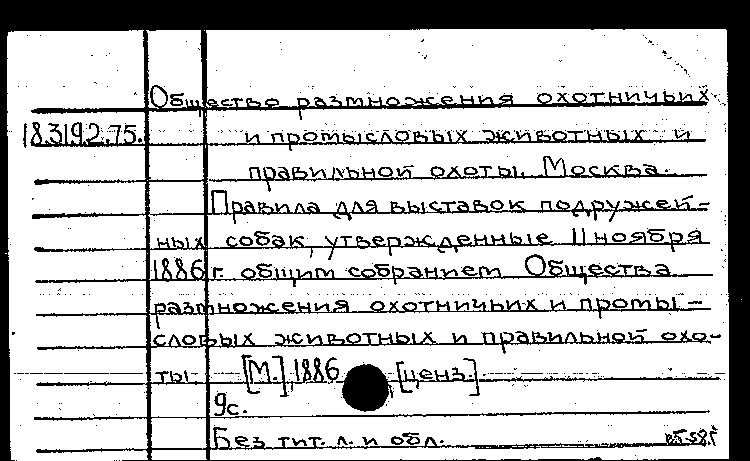 Общество размножения охотничьих
18.319.2.75. и промысловых животных и
правильной охоты. Москва.
Правила для выставок подружей-
ных собак, утвержденные 11 ноября
1886 г. общим собранием Общества
размножения охотничьих и промы-
словых животных и правильной охо-
ты. [М.], 1886 [ценз.].
9с.
Без тит. л. и обл.